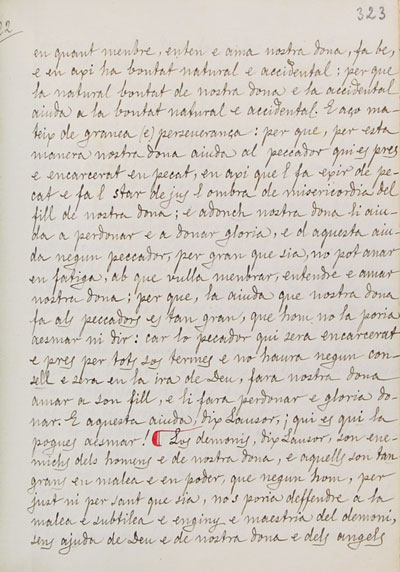 323
22
en quant menbre, enten e ama nostra dona, fa be,
e en axi ha bontat natural e accidental: per que
la natural bontat de nostra dona e la accidental
aiuda a la bontat natural e accidental. E aço ma-
teix de granea (e) perseverança: per que, per esta
manera nostra dona aiuda al peccador qui es pres
e encarcerat en pecat, en axi que l fa exir de pe-
cat e fa l star de jus l ombra de misericordia del
fill de nostra dona; e adonch nostra dona li aiu-
da a perdonar e a donar gloria, e d aquesta aiu-
da negun peccador, per gran que sia, no pot anar
en fatiga, ab que vulla menbrar, entendre e amar
nostra dona; per que, la aiuda que nostra dona
fa als peccadors es tan gran, que hom no la poria
aesmar ni dir: car lo pecador qui sera encarcerat
e pres per tots sos termes e no haura negun con-
sell e sera en la ira de Deu, fara nostra dona
amar a son fill, e li fara perdonar e gloria do-
nar. E aquesta aiuda, dix Lausor, ¡qui es qui la
pogues aesmar! Los demonis, dix Lausor, son ene-
michs dels homens e de nostra dona, e aquells son tan
grans en malea e en poder, que negun hom, per
just ni per sant que sia, no s poria deffendre a la
malea e subtilea e enginy e maestria del demoni,
sens ajuda de Deu e de nostra dona e dels angels